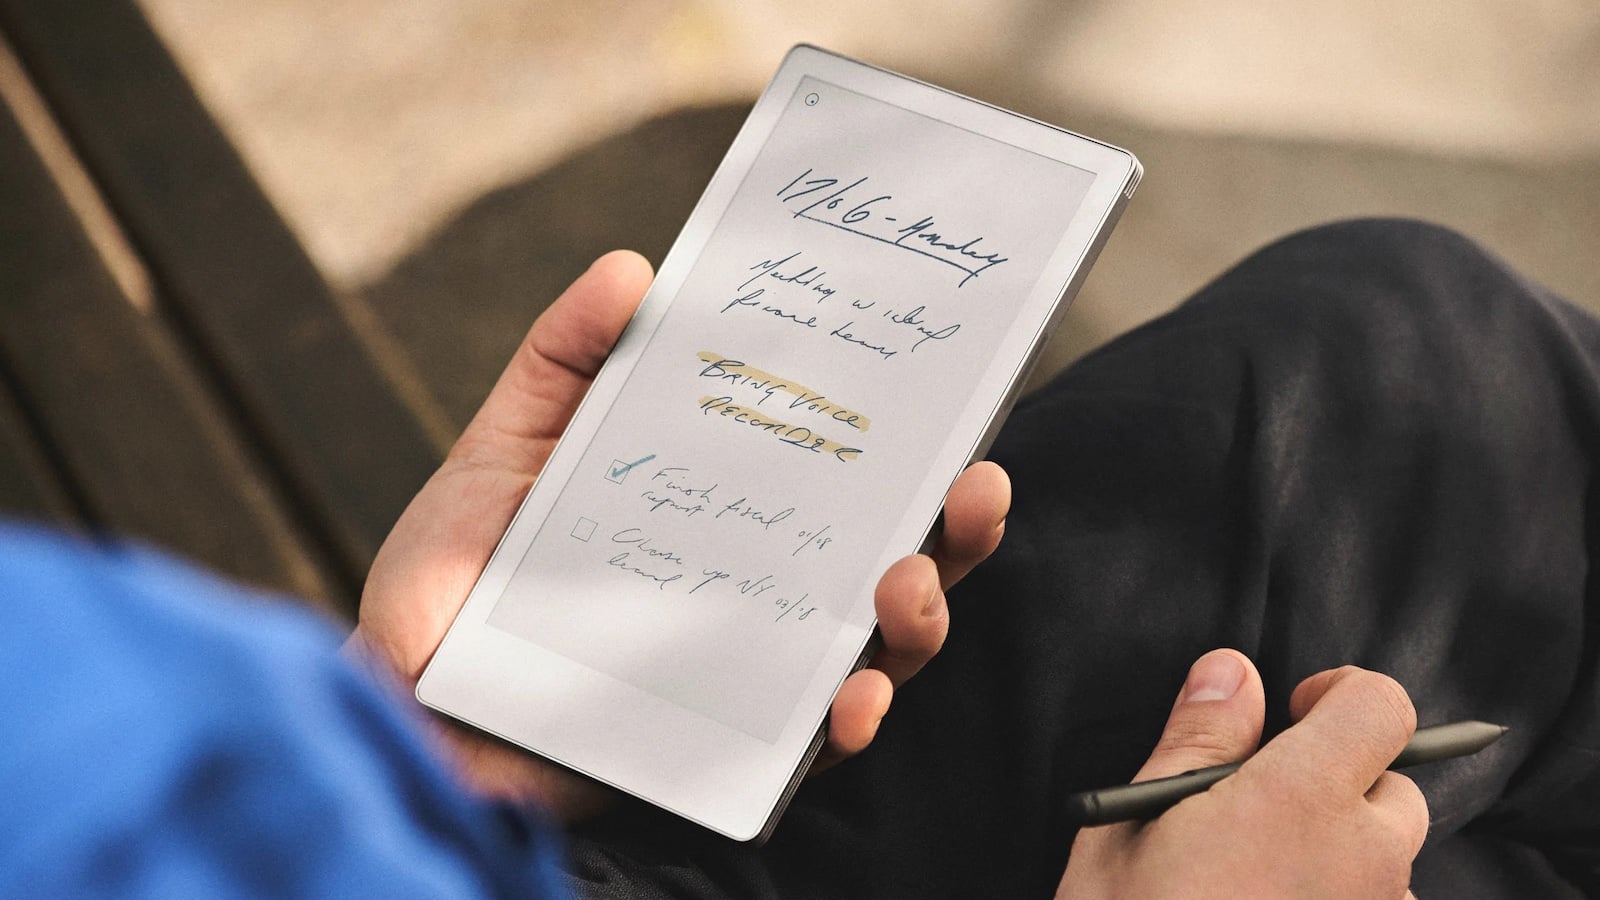 17/06 - Monday
Meeting w internal
finance team
- BRING VOICE
RECORDER
Finish fiscal 01/08
report
Close up NY 03/08